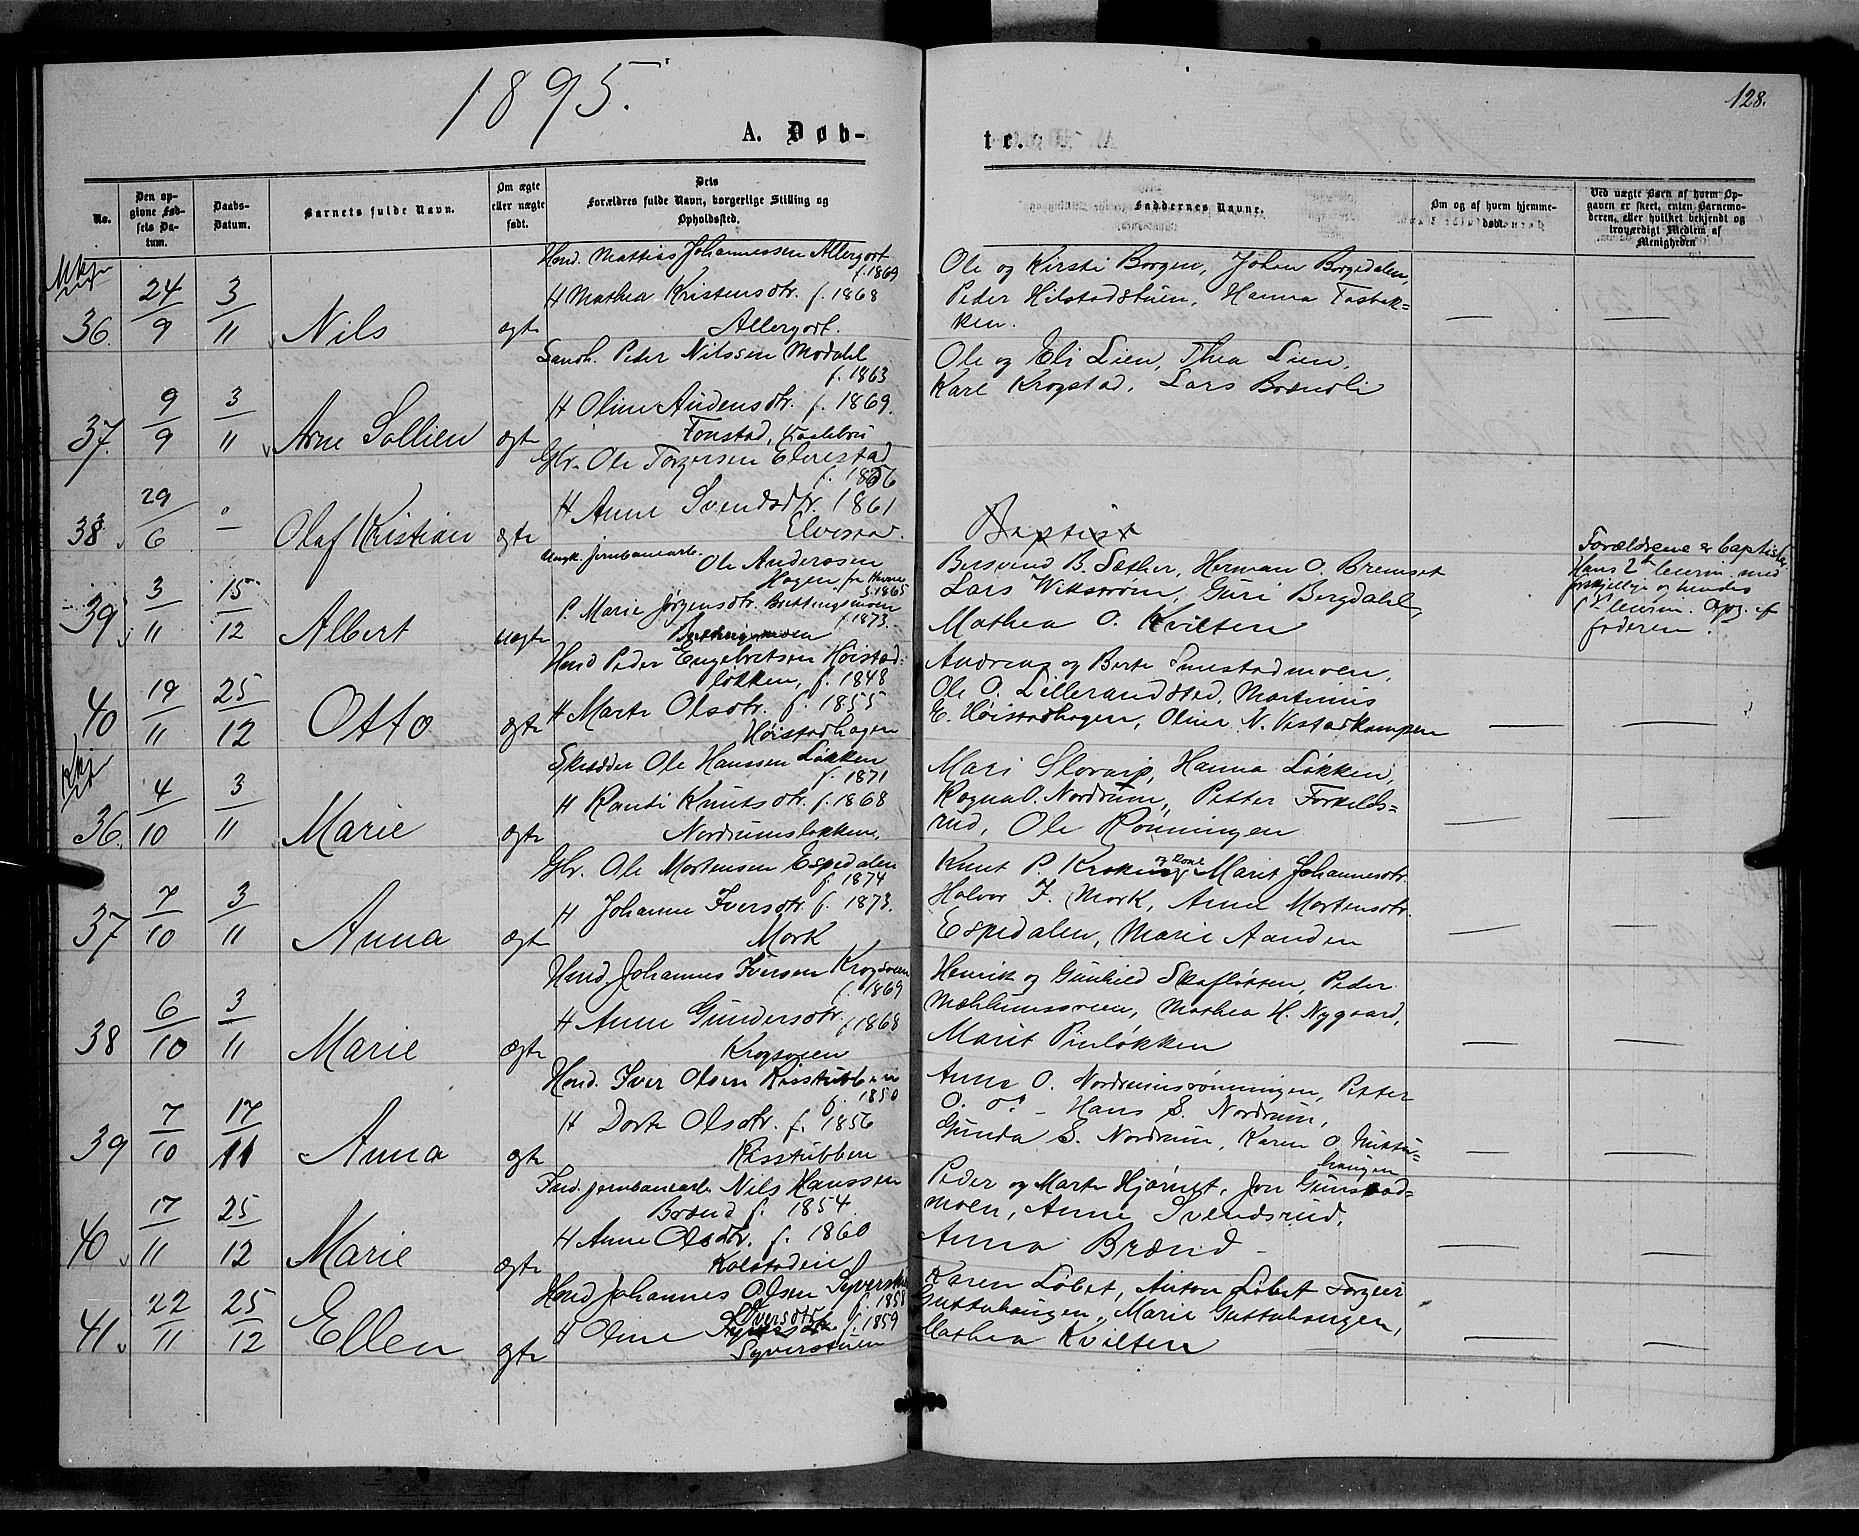 1895.
128.
A. Døb-
te.
No.
Den op-
givne Fød-
sels Da-
tum.
Daabs-
Datum.
Barnets fulde Navn.
Om ægte
eller uægte
født.
Dets
Forældres fulde Navn, borgerlige Stilling og
Opholdssted.
Faddernes Navne.
Om og af hvem hjemme-
døbt.
Ved uægte Barn af hvem Op-
gaven er skeet, enten Barnemo-
deren, eller hvilket bekjendt og
troværdigt Medlem af
Menigheden
36. 24/9 3/11 Nils ægte
Hmd. Mattias Johannessen Allergodt
f. 1869
H Mathea Kristensdtr. f. 1868
Allergodt.
Ole og Kirsti Borgen, Johan Borgedalen,
Peder Hilstadstuen, Hanna Fosbak-
ken.
—
—
37. 9/9 3/11 Arne Sollien ægte
Sandh. Peder Nilssen Modahl
f. 1863
H Oline Audensdtr. f. 1869.
Fonstad, Kaalebru
Ole og Eli Lien, Thea Lien,
Karl Krogstad, Lars Brændli
38. 29/6 Olaf Kristian ægte
Gbr. Ole Torgersen Elvestad
f. 1856
H Anne Svendsdtr. 1861
Elvestad.
Baptist
39. 3/11 15/12 Albert uægte
Ungk. jernbanearb. Ole Anderssen
Hagen
f. 1865
P. Marie Jørgensdtr. Brettingsmoen
f. 1873.
Bersvend B. Sæther, Herman O. Bremset
Lars Wiksrøm, Guri Bergdahl,
Mathea O. Kvilten
Forældrene er baptister
Hans 2det leierm. med
forskjellige og hendes
1ste leierm. Opg. af
faderen.
40 19/11 25/12 Otto ægte
Hmd Peder Engebretsen Høistad-
løkken, f. 1848
H Marte Olsdtr. f. 1855
Høistadhagen
Andreas og Berte Smestadmoen,
Ole O. Lillerandstad, Martinus
E. Høistadhagen, Oline N. Vestadkampen
—
—
36. 4/10 3/11 Marie ægte
Skrædder Ole Hanssen Løkken
f. 1871
H Randi Knutsdtr. f. 1868
Nordrumsløkken.
Mari Slovarp, Hanna Løkken,
Ragna O. Nordrum, Petter Torkilds-
rud, Ole Rønningen
—
—
37 7/10 3/11 Anna ægte
Gbr. Ole Mortensen Espedalen
f. 1874
H Johanne Iversdtr. f. 1873.
Mork
Knut P. Kroken og Kone Marit Johannesdtr.
Halvor I. Mork, Anne Mortensdtr.
Espedalen, Marie Aanden
—
—
38 6/10 3/11 Marie ægte
Hmd. Johannes Iversen Krogsveen
f. 1869
H Anne Gundersdtr. f. 1868
Krogsveen
Henrik og Gunhild Skafløtten, Peder
Mæhlumsveen, Mathea H. Nygaard,
Marit Piuløkken
—
—
39 7/10 17/11 Anna ægte
Hmd. Iver Olsen Risstubben
f. 1850
H Dorte Olsdtr. f. 1856
Risstubben
Anne O. Nordrumsrønningen, Petter
O. do - Hans S. Nordrum,
Gunda S. Nordrum, Karen O. Guttu-
haugen
—
—
40 17/11 25/12 Marie ægte
Ind. jernbanearb. Nils Hanssen
Brænd f. 1854.
H Anne Olsdtr. f. 1860
Kolstadeie
Peder og Marte Hjørnet, Jon Gunstad-
moen, Anne Svendsrud,
Anna Brænd -
—
—
41. 22/11 25/12 Ellen ægte
Hmd Johannes Olsen Syverstuen
f. 1858
H Oline Iversdtr. f. 1859
Syverstuen
Karen Løbet, Anton Løbet Torgeir
Guttuhaugen, Marie Guttuhaugen,
Mathea Kvilten
—
—